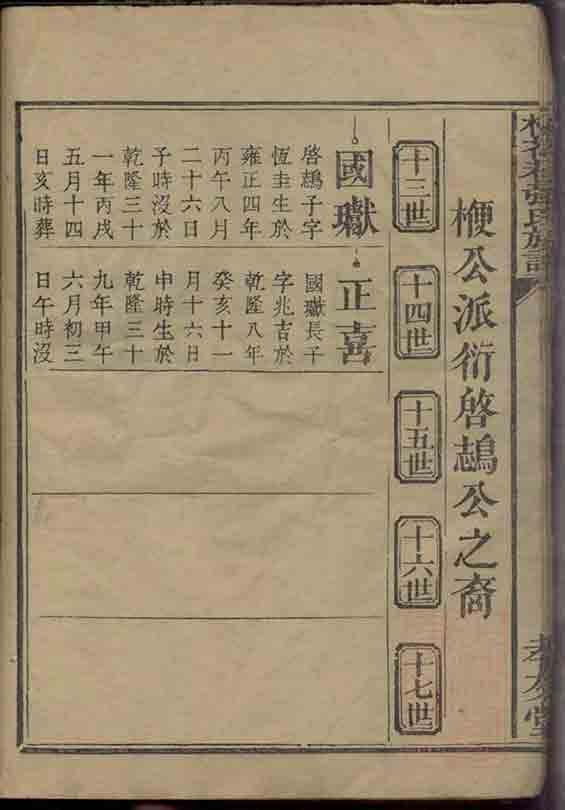 氏族譜
孝友堂
楩公派衍啓鵡公之裔
十三世
十四世
十五世
十六世
十七世
國瓛
啓鵡子字
恆圭生於
雍正四年
丙午八月
二十六日
子時沒於
乾隆三十
一年丙戌
五月十四
日亥時葬
正喜
國瓛長子
字兆吉於
乾隆八年
癸亥十一
月十六日
申時生於
乾隆三十
九年甲午
六月初三
日午時沒